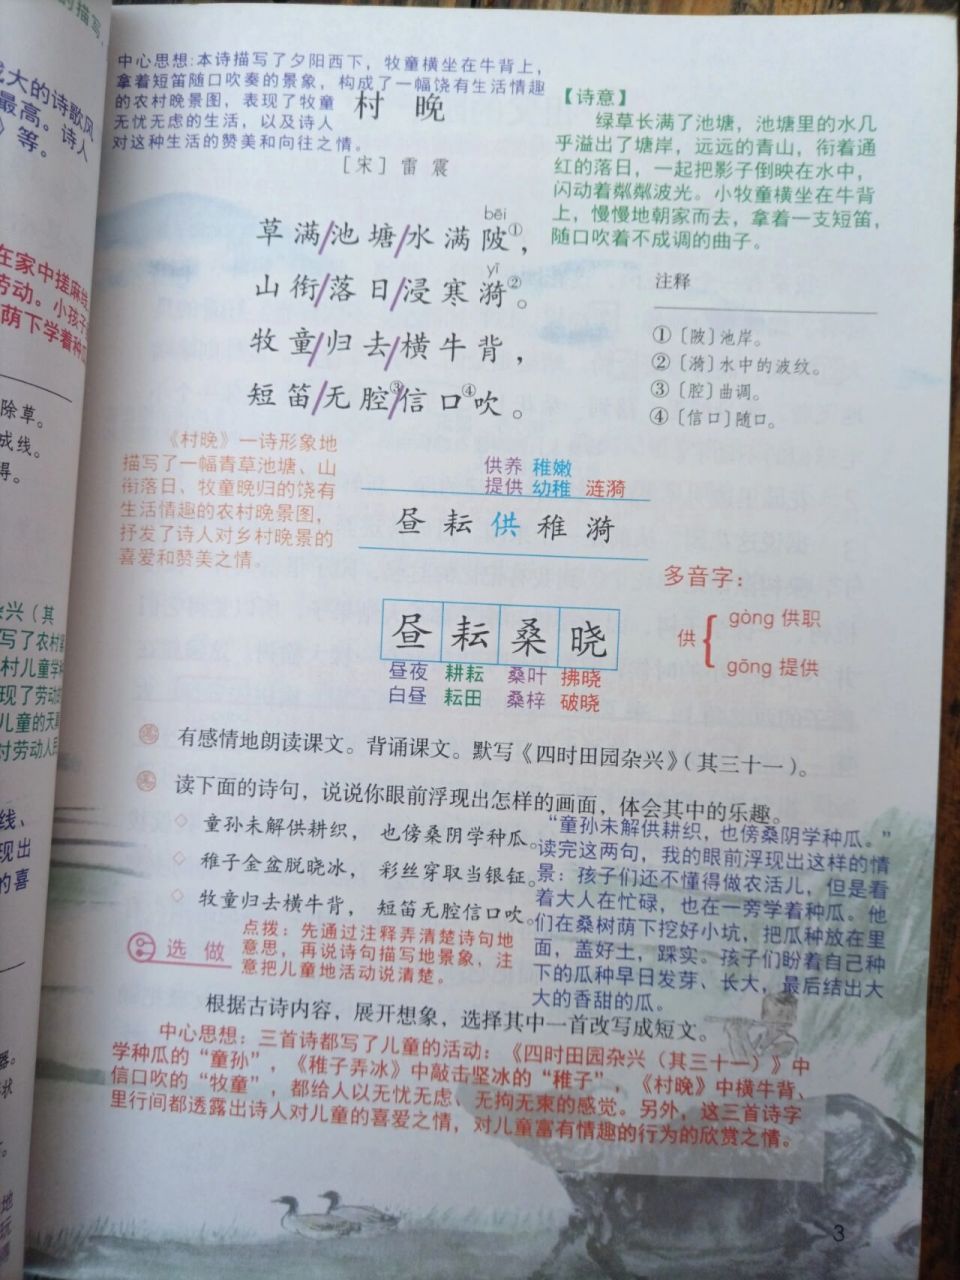 的描写，
大的诗歌风
最高。诗人
》等。
在家中搓麻线
劳动。小孩子
荫下学着种
除草。
成线。
得。
杂兴（其
写了农村
村儿童学
现了劳动
儿童的天
对劳动人民
线、
现出
的喜
中心思想：本诗描写了夕阳西下，牧童横坐在牛背上，
拿着短笛随口吹奏的景象，构成了一幅饶有生活情趣
的农村晚景图，表现了牧童
无忧无虑的生活，以及诗人
对这种生活的赞美和向往之情。
村 晚
［宋］雷 震
【诗意】
绿草长满了池塘，池塘里的水几
乎溢出了塘岸，远远的青山，衔着通
红的落日，一起把影子倒映在水中，
闪动着粼粼波光。小牧童横坐在牛背
上，慢慢地朝家而去，拿着一支短笛，
随口吹着不成调的曲子。
bēi
草满/池塘/水满陂①，
yī
山衔/落日/浸寒漪②。
牧童/归去/横牛背，
短笛/无腔③/信口④吹。
注释
①〔陂〕池岸。
②〔漪〕水中的波纹。
③〔腔〕曲调。
④〔信口〕随口。
《村晚》一诗形象地
描写了一幅青草池塘、山
衔落日、牧童晚归的饶有
生活情趣的农村晚景图，
抒发了诗人对乡村晚景的
喜爱和赞美之情。
供养 稚嫩
提供 幼稚 涟漪
昼 耘 供 稚 漪
多音字：
供{
gòng 供职
gōng 提供
昼 耘 桑 晓
昼夜 耕耘 桑叶 拂晓
白昼 耘田 桑梓 破晓
有感情地朗读课文。背诵课文。默写《四时田园杂兴》（其三十一）。
读下面的诗句，说说你眼前浮现出怎样的画面，体会其中的乐趣。
◇ 童孙未解供耕织，也傍桑阴学种瓜。
◇ 稚子金盆脱晓冰，彩丝穿取当银钲。
◇ 牧童归去横牛背，短笛无腔信口吹。
“童孙未解供耕织，也傍桑阴学种瓜。”
读完这两句，我的眼前浮现出这样的情
景：孩子们还不懂得做农活儿，但是看
着大人在忙碌，也在一旁学着种瓜。他
们在桑树荫下挖好小坑，把瓜种放在里
面，盖好土，踩实。孩子们盼着自己种
下的瓜种早日发芽、长大，最后结出大
大的香甜的瓜。
选 做
点拨：先通过注释弄清楚诗句地
意思，再说诗句描写地景象，注
意把儿童地活动说清楚。
根据古诗内容，展开想象，选择其中一首改写成短文。
中心思想：三首诗都写了儿童的活动：《四时田园杂兴（其三十一）》中
学种瓜的“童孙”，《稚子弄冰》中敲击坚冰的“稚子”，《村晚》中横牛背、
信口吹的“牧童”，都给人以无忧无虑、无拘无束的感觉。另外，这三首诗字
里行间都透露出诗人对儿童的喜爱之情，对儿童富有情趣的行为的欣赏之情。
3